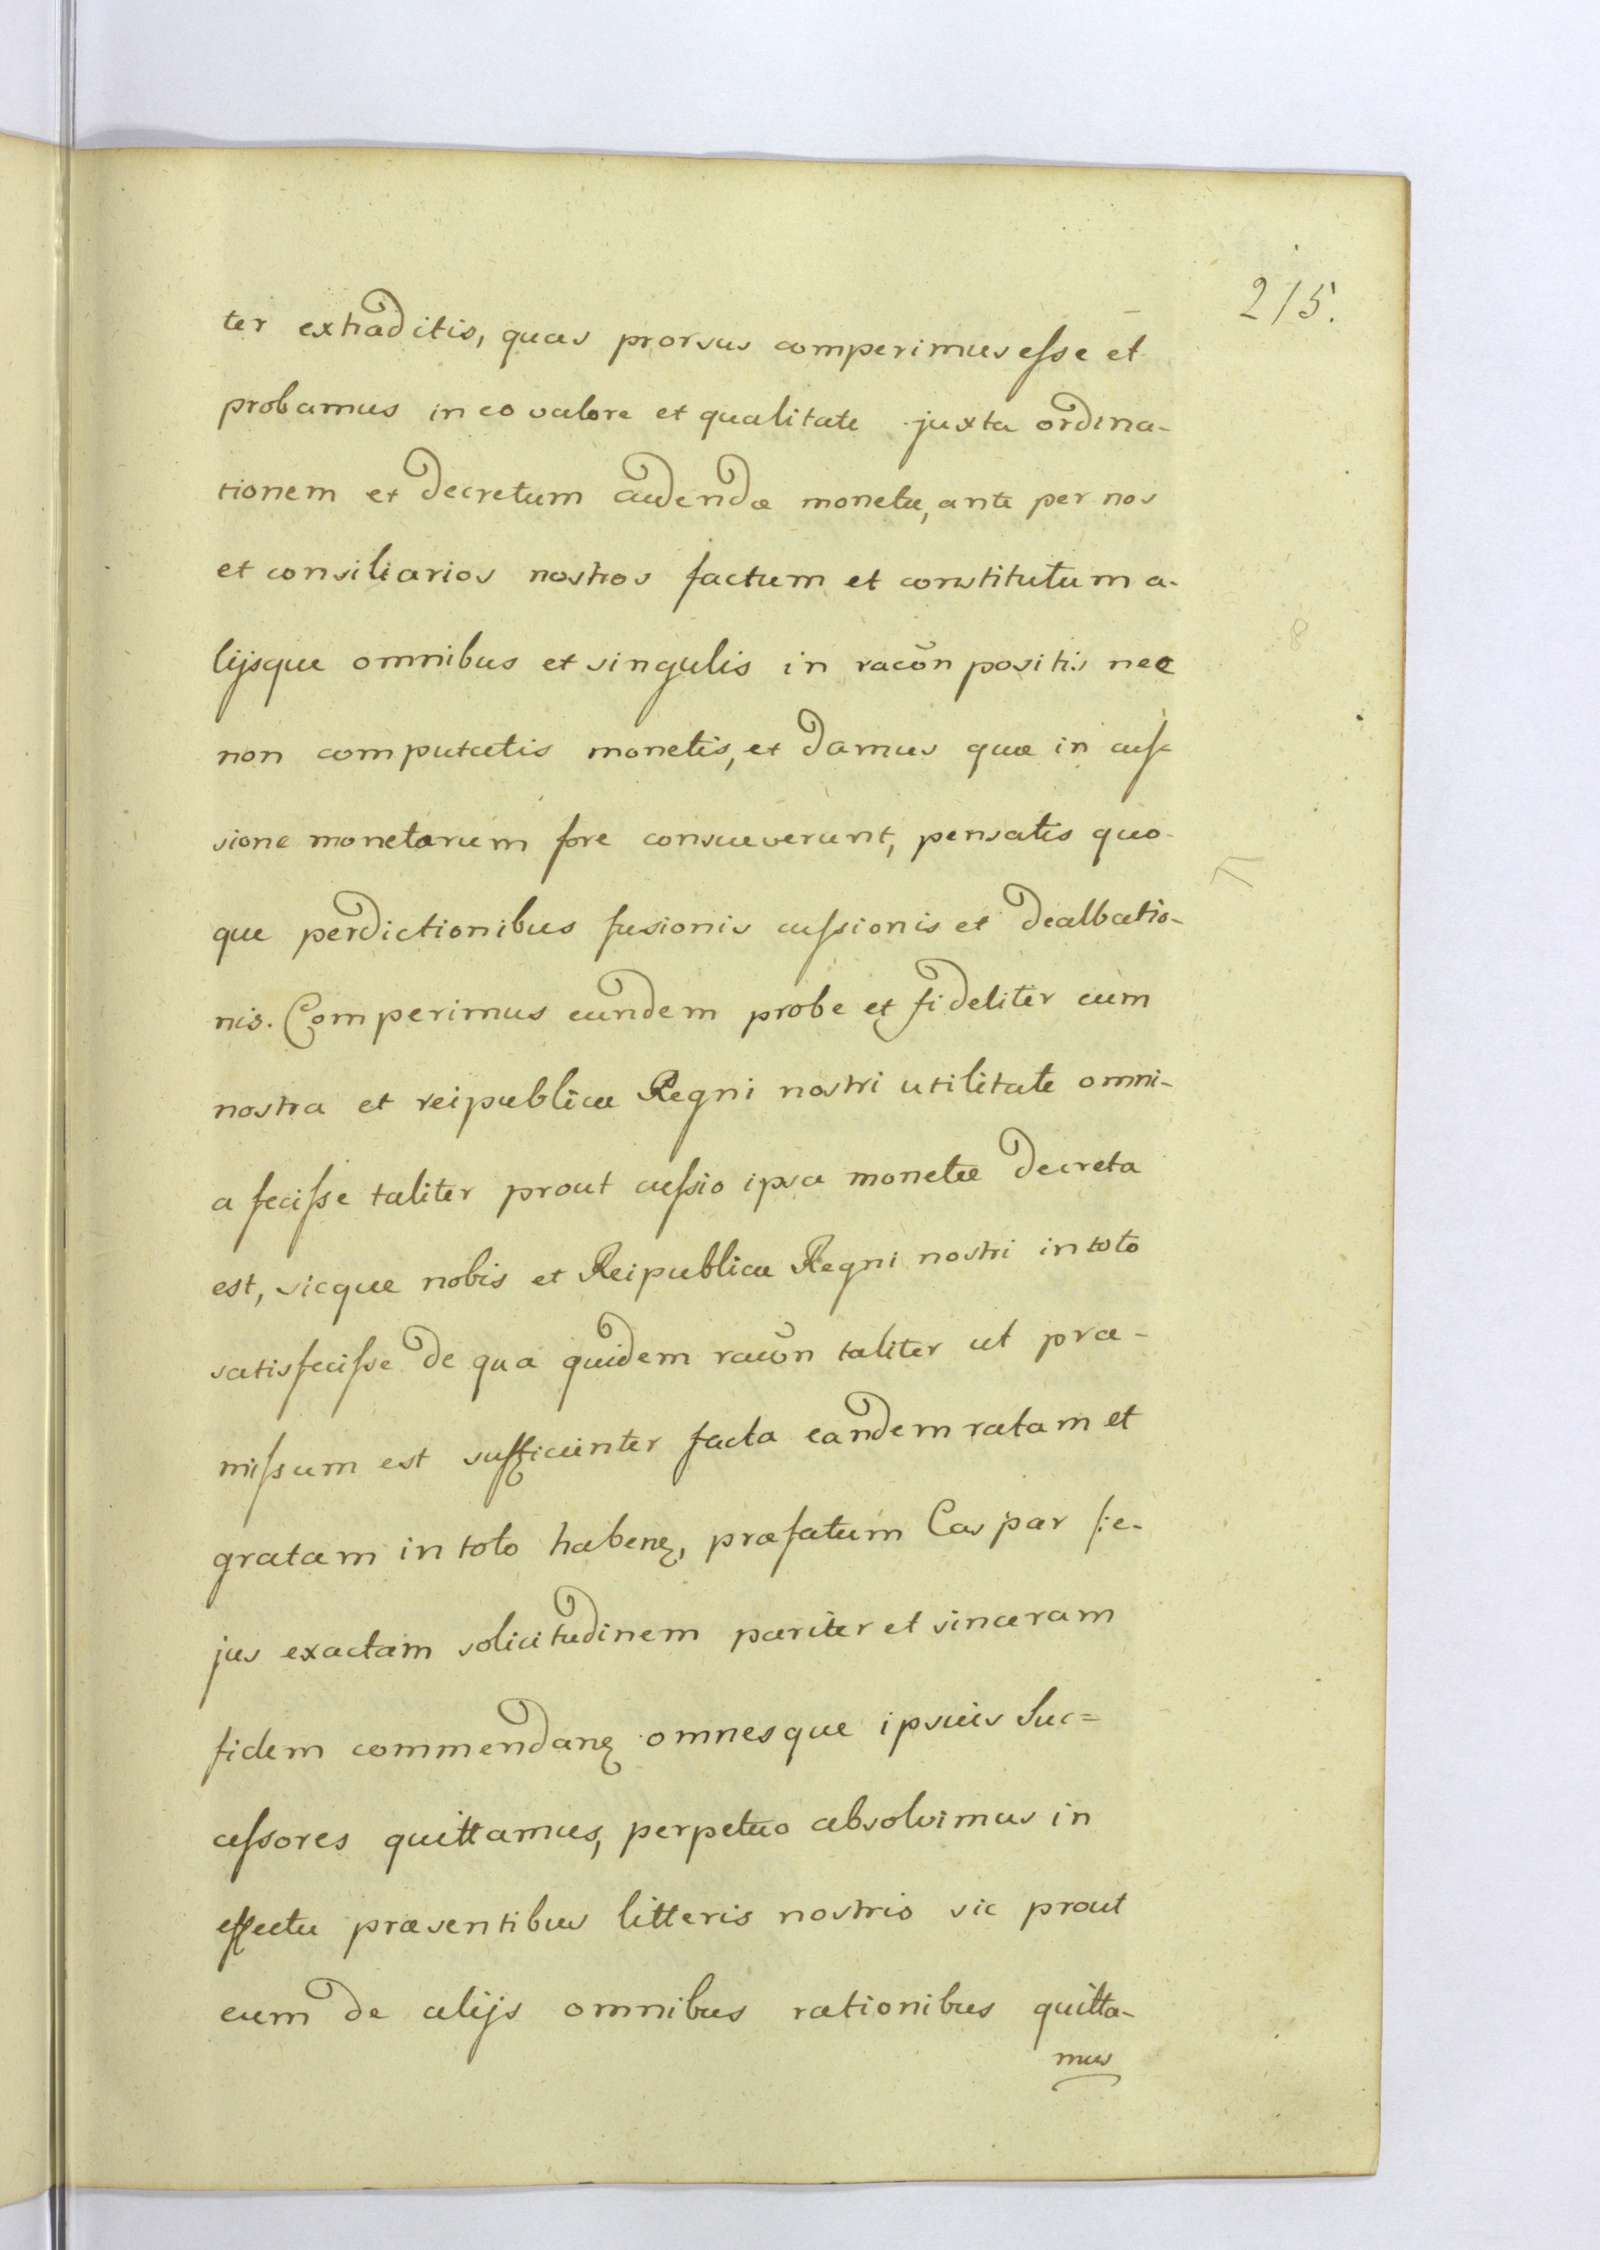 215.
ter extraditis, quas prorsus comperimus esse et
probamus in eo valore et qualitate juxta ordina-
tionem et decretum cudendæ monetæ, ante per nos
et consiliarios nostros factum et constitutum a-
lijsque omnibus et singulis in racōn positis nec
non computatis monetis, et damus quæ in cus-
sione monetarum fore consueverunt, pensatis quo-
que perdictionibus fusionis cussionis et dealbatio-
nis. Comperimus eundem probe et fideliter cum
nostra et reipublicæ Regni nostri utilitate omni-
a fecisse taliter prout cussio ipsa monetæ decreta
est, sicque nobis et Reipublicæ Regni nostri in toto
satisfecisse de qua quidem racōn taliter ut præ-
missum est sufficienter facta eandem ratam et
gratam in toto habenꝫ, præfatum Caspar /:e-
jus exactam solicitudinem pariter et sinceram
fidem commendanꝫ omnesque ipsius Suc=
cessores quittamus, perpetuo absolvimus in
effectu præsentibus litteris nostris sic prout
eum de alijs omnibus rationibus quitta-
mus